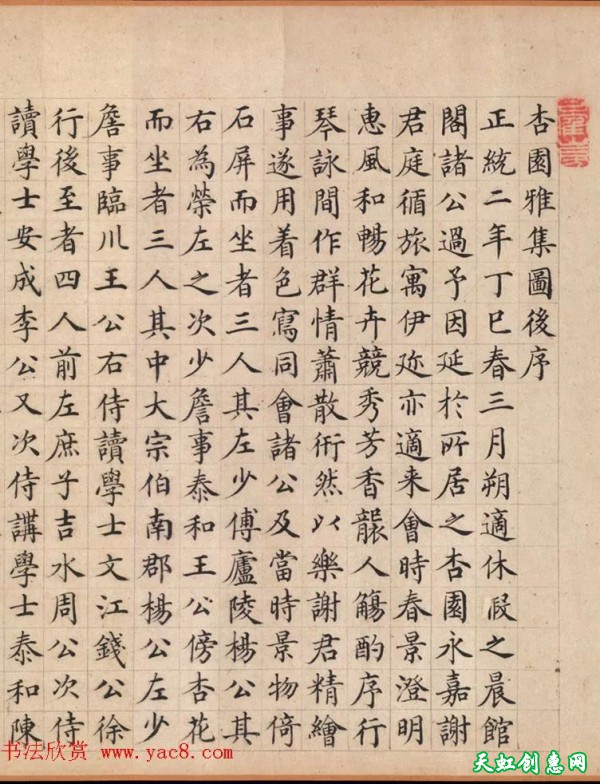 杏園雅集圖後序
正統二年丁巳春三月朔適休假之晨館
閣諸公過予因延於所居之杏園永嘉謝
君庭循旅寓伊迩亦適来會時春景澄明
惠風和暢花卉競秀芳香襲人觴酌序行
琴詠間作群情蕭散衎然以樂謝君精繪
事遂用着色寫同會諸公及當時景物倚
石屏而坐者三人其左少傅廬陵楊公其
右為榮左之次少詹事泰和王公傍杏花
而坐者三人其中大宗伯南郡楊公左少
詹事臨川王公右侍讀學士文江錢公徐
行後至者四人前左庶子吉水周公次侍
讀學士安成李公又次侍講學士泰和陳
书法欣赏 www.yac8.com
天虹创惠网